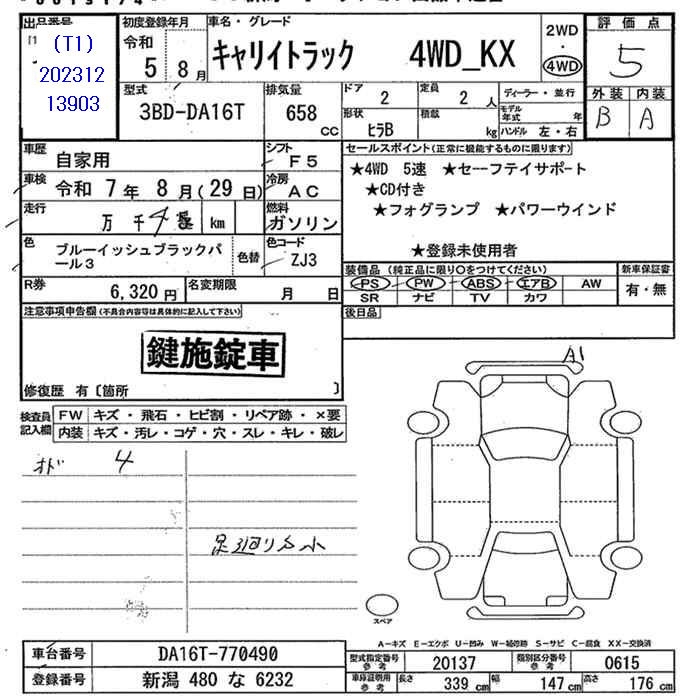 出品番号 初度登録年月 車名・グレード 2WD 評価点
(T1) 令和 5年 8月 キャリイトラック 4WD_KX ・ 5
202312 4WD 外装 内装
13903 B A
型式 排気量 ドア 2 定員 2人 ディーラー・並行
3BD-DA16T 658 cc 形状 ヒラB 積載 kg モデル年式 年
ハンドル 左・右
車歴 自家用 シフト F5 セールスポイント(正常に機能するものに限ります)
車検 令和 7年 8月(29日) 冷房 AC ★4WD 5速 ★セーフテイサポート
★CD付き
走行 万 千 4 km 燃料 ガソリン ★フォグランプ ★パワーウインド
色 ブルーイッシュブラックパール3 色替 色コード ZJ3 ★登録未使用者
R券 6,320円 名変期限 月 日 装備品(純正品に限り○をつけてください) 新車保証書
PS PW ABS エアB AW 有・無
SR ナビ TV カワ
注意事項申告欄(不具合内容等は具体的に記入して下さい) 後日品
鍵施錠車
修復歴 有〔箇所 〕
A1
検査員記入欄 FW キズ・飛石・ヒビ割・リペア跡・×要
内装 キズ・汚レ・コゲ・穴・スレ・キレ・破レ
オド 4
足廻りサ小
スペア
A-キズ E-エクボ U-凹み W-補修跡 S-サビ C-腐食 XX-交換済
車台番号 DA16T-770490 型式指定番号 参考 20137 類別区分番号 参考 0615
登録番号 新潟 480 な 6232 車庫証明用 参考 長さ 339 cm 幅 147 cm 高さ 176 cm